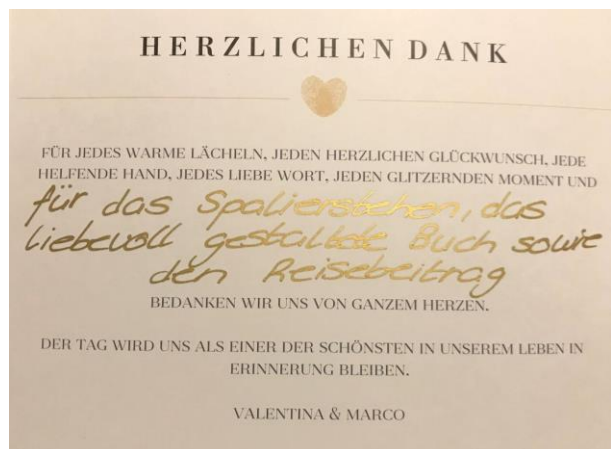 HERZLICHEN DANK
FÜR JEDES WARME LÄCHELN, JEDEN HERZLICHEN GLÜCKWUNSCH, JEDE
HELFENDE HAND, JEDES LIEBE WORT, JEDEN GLITZERNDEN MOMENT UND
für das Spalierstehen, das
liebevoll gestaltete Buch sowie
den Reisebeitrag
BEDANKEN WIR UNS VON GANZEM HERZEN.
DER TAG WIRD UNS ALS EINER DER SCHÖNSTEN IN UNSEREM LEBEN IN
ERINNERUNG BLEIBEN.
VALENTINA & MARCO